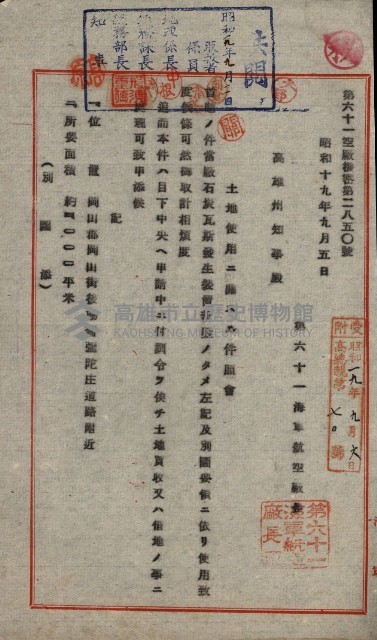 第六十一空廠機密第二八五〇號
昭和十九年九月五日
第六十一海軍航空廠長
高雄州知事殿
土地使用ニ關スル件照會
首題ノ件當廠石炭瓦斯發生裝置新設ノタメ左記及別圖要領ニ依リ使用致
度候條可然御取計相煩度
追而本件ハ目下中央ヘ申請中ニ付訓令ヲ俟チ土地買收又ハ借地ノ事ニ
處理可致申添候
記
一、位 置 岡山郡岡山街後 彌陀庄道路附近
二、所要面積 約 〇〇〇平米
(別圖添)
供閱
昭和一九年九月 日
係員
地理係長
課長
總務部長
知事
受附
昭和一九年九月六日
七〇號
第六十一海軍航空廠長
高雄市立歷史博物館
KAOHSIUNG MUSEUM OF HISTORY